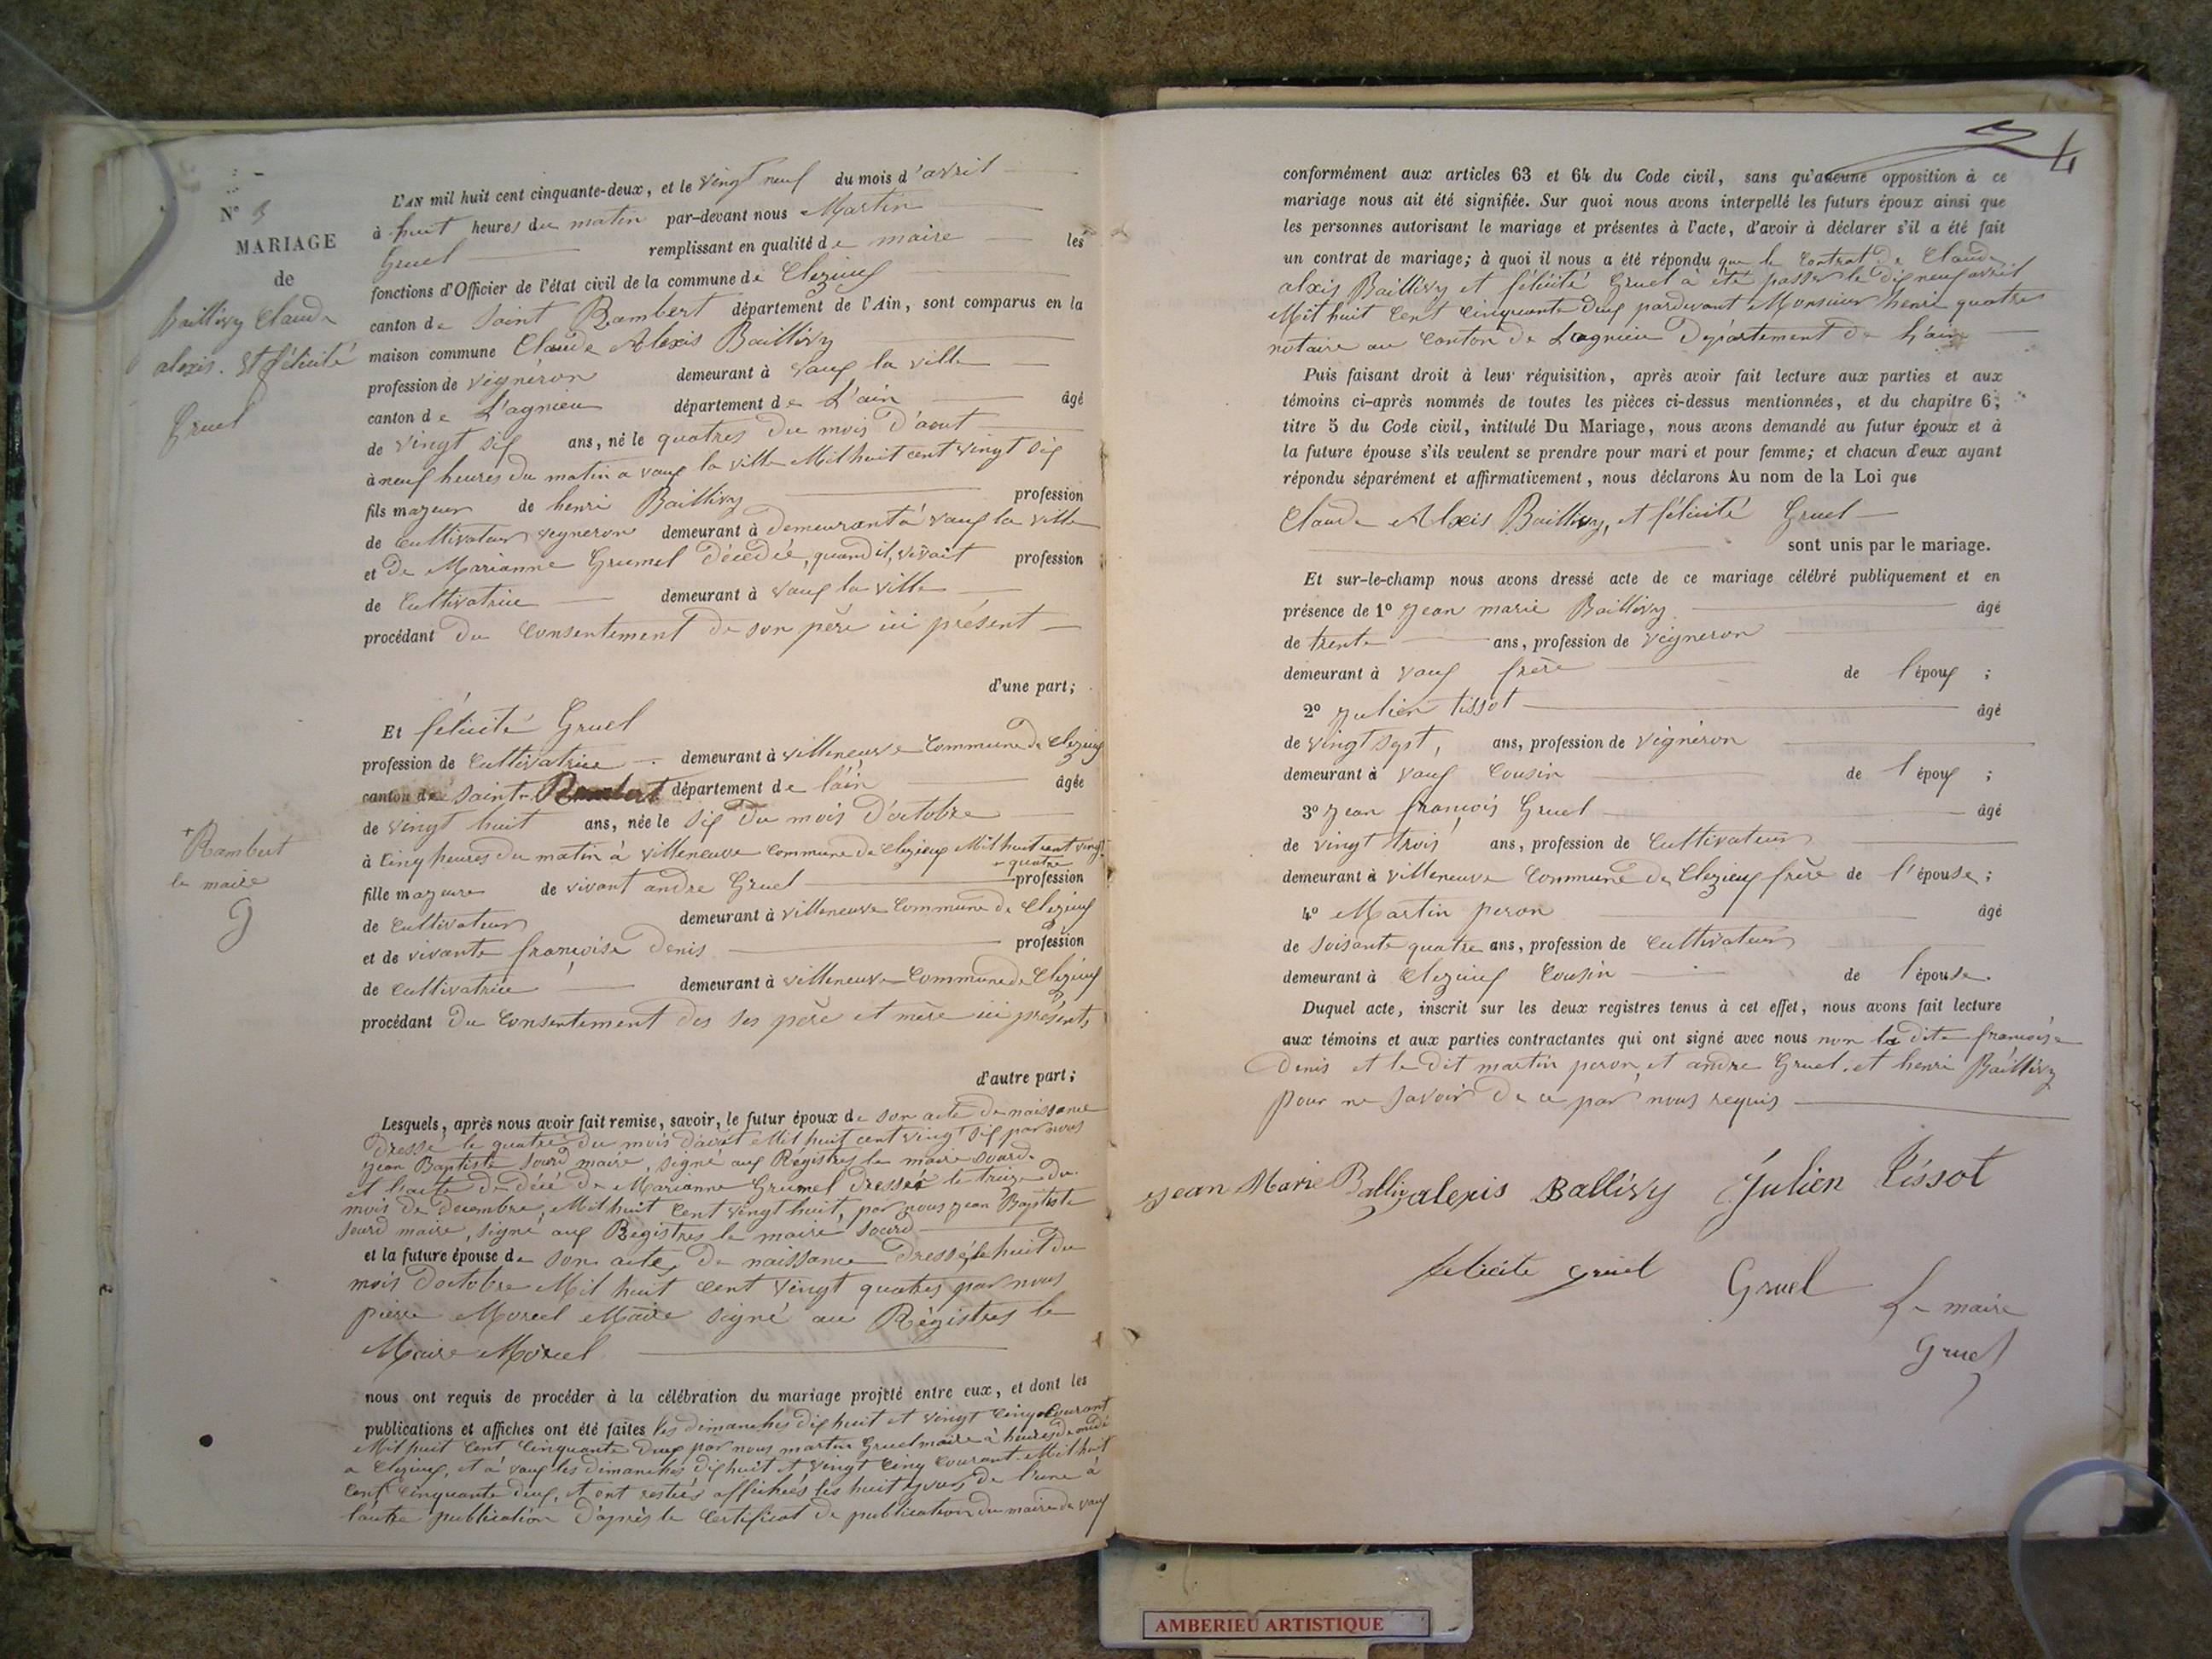 N° 3
MARIAGE
de
Baillivy Claude
alexis. Et félicité
Gruel
L'AN mil huit cent cinquante-deux, et le vingt neuf du mois d'avril
à huit heures du matin par-devant nous Martin
Gruel remplissant en qualité de maire les
fonctions d'Officier de l'état civil de la commune de Clezieux
canton de Saint Rambert département de l'Ain, sont comparus en la
maison commune Claude Alexis Baillivy
profession de vignéron demeurant à vaux la ville
canton de L'agnieu département de L'ain âgé
de vingt six ans, né le quatres du mois d'aout
à neuf heures du matin a vaux la ville Mil huit cent vingt six
fils majeur de henri Baillivy profession
de cultivateur vegneron demeurant à demeurant à vaux la ville
et de Marianne Grumel décédée, quand il, vivait profession
de Cultivatrice demeurant à vaux la ville
procédant du Consentement de son père ici présent
d'une part;
Et félicité Gruel
profession de Cultivatrice demeurant à villeneuve Commune de Clezieux
canton de Saint Rambert département de l'ain âgée
de vingt huit ans, née le six du mois d'octobre
à Cinq heures du matin à villeneuve Commune de Clezieux Mil huit cent vingt
+ quatre
fille majeure de vivant andre Gruel profession
de Cultivateur demeurant à villeneuve Commune de Clezieux
et de vivante françoise Denis profession
de Cultivatrice demeurant à villeneuve Commune de Clezieux
procédant du Consentement des ses père et mère ici présents
d'autre part;
+ Rambert
le maire
G
Lesquels, après nous avoir fait remise, savoir, le futur époux de son acte de naissance
dressé le quatre du mois d'aout Mil huit cent vingt six par nous
jean Baptiste Sourd maire, signé aux Régistres le maire sourd.
et l'acte de décé de Marianne Grumel dressée le treize du
mois de decembre, Mil huit Cent vingt huit, par nous jean Baptiste
Sourd maire, signé aux Régistres le maire Sourd
et la future épouse de son acte de naissance dressé le huit du
mois d'octobre Mil huit Cent vingt quatres par nous
pierre Morcel Maire signé au Régistres le
Maire Morcel
nous ont requis de procéder à la célébration du mariage projeté entre eux, et dont les
publications et affiches ont été faites les dimanches dix huit et vingt Cinq Courant
Mil huit Cent Cinquante deux par nous martin Gruel maire à heures de midi
a Clezieux, et à vaux les dimanches dix huit et vingt Cinq Courant Mil huit
Cent Cinquante deux, et ont restées affichées les huit jours de l'une à
l'autre publication d'après le Certificat de publication du maire de vaux
4
conformément aux articles 63 et 64 du Code civil, sans qu'aucune opposition à ce
mariage nous ait été signifiée. Sur quoi nous avons interpellé les futurs époux ainsi que
les personnes autorisant le mariage et présentes à l'acte, d'avoir à déclarer s'il a été fait
un contrat de mariage; à quoi il nous a été répondu que le Contrat de Claude
alexis Baillivy et félicité Gruel à été passer le dix neuf avril
Mil huit Cent Cinquante deux pardevant Monsieur henri quatres
notaire au Canton de Lagnieu Département de L'ain
Puis faisant droit à leur réquisition, après avoir fait lecture aux parties et aux
témoins ci-après nommés de toutes les pièces ci-dessus mentionnées, et du chapitre 6,
titre 5 du Code civil, intitulé Du Mariage, nous avons demandé au futur époux et à
la future épouse s'ils veulent se prendre pour mari et pour femme; et chacun d'eux ayant
répondu séparément et affirmativement, nous déclarons Au nom de la Loi que
Claude Alexis Baillivy, et félicité Gruel
sont unis par le mariage.
Et sur-le-champ nous avons dressé acte de ce mariage célébré publiquement et en
présence de 1° jean marie Baillivy âgé
de trente ans, profession de vegneron
demeurant à vaux frère de l'époux ;
2° julien tissot âgé
de vingt sept, ans, profession de vignéron
demeurant à vaux Cousin de l'époux ;
3° jean françois Gruel âgé
de vingt trois ans, profession de Cultivateur
demeurant à villeneuve Commune de Clezieux frère de l'épouse ;
4° Martin peron âgé
de soisante quatre ans, profession de Cultivateur
demeurant à Clezieux Cousin de l'épouse.
Duquel acte, inscrit sur les deux registres tenus à cet effet, nous avons fait lecture
aux témoins et aux parties contractantes qui ont signé avec nous non la dite françoise
Denis et le dit martin peron, et andre Gruel. et henri Baillivy
pour ne savoir de ce par nous requis
jean Marie Balliv alexis Ballivy Julien Tissot
felicite gruel Gruel Le maire
Gruel
AMBERIEU ARTISTIQUE